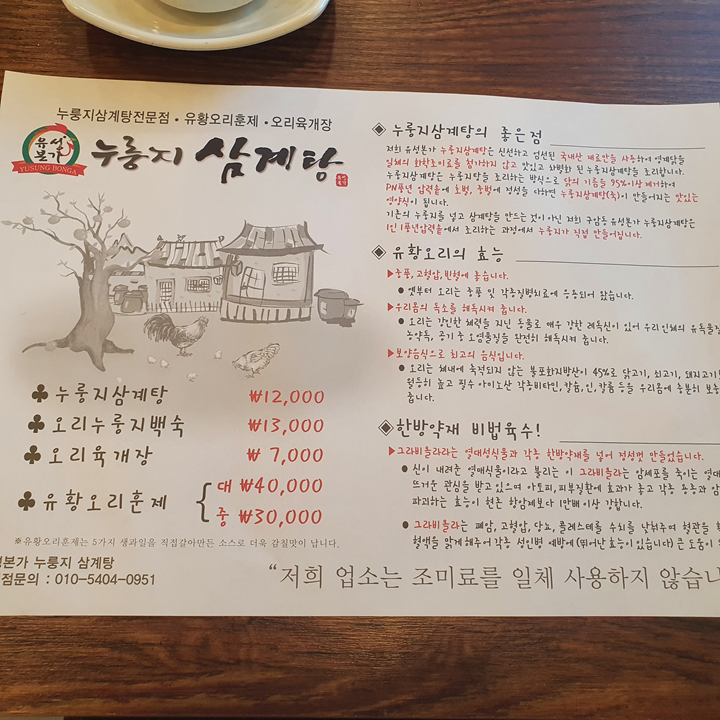 누룽지삼계탕전문점 · 유황오리훈제 · 오리육개장
유성
본가
YUSUNG BONGA
누룽지 삼계탕
♣ 누룽지삼계탕 ₩12,000
♣ 오리누룽지백숙 ₩13,000
♣ 오리육개장 ₩ 7,000
♣ 유황오리훈제 { 대 ₩40,000
중 ₩30,000
※유황오리훈제는 5가지 생과일을 직접갈아만든 소스로 더욱 감칠맛이 납니다.
성본가 누룽지 삼계탕
점문의 : 010-5404-0951
◈ 누룽지삼계탕의 좋은점
저희 유성본가 누룽지삼계탕은 신선하고 엄선된 국내산 재료만을 사용하여 영계닭을
일체의 화학조미료를 첨가하지 않고 맛있고 차별화 된 누룽지삼계탕을 조리합니다.
누룽지삼계탕은 누룽지탕을 조리하는 방식으로 닭의 기름을 95%이상 제거하여
PN풍년 압력솥에 초벌, 중벌에 정성을 다하면 누룽지삼계탕(죽)이 만들어지는 맛있는
영양식이 됩니다.
기존의 누룽지를 넣고 삼계탕을 만드는 것이 아닌 저희 구암동 유성본가 누룽지삼계탕은
1인 1풍년압력솥에서 조리하는 과정에서 누룽지가 직접 만들어집니다.
◈ 유황오리의 효능
▶중풍,고혈압,빈혈에 좋습니다.
● 옛부터 오리는 중풍 및 각종질병치료에 응용되어 왔습니다.
▶우리몸의 독소를 해독시켜 줍니다.
● 오리는 강인한 체력을 지닌 동물로 매우 강한 해독신이 있어 우리인체의 유독물질
농약독, 공기 중 오염물질을 완전히 해독시켜 줍니다.
▶보양음식으로 최고의 음식입니다.
● 오리는 체내에 축적되지 않는 불포화지방산이 45%로 닭고기, 쇠고기, 돼지고기보
월등히 높고 필수 아미노산 각종비타민,칼슘,인,칼륨 등을 우리몸에 충분히 보충
줍니다.
◈한방약재 비법육수!
▶그라비올라라는 열대성식물과 각종 한방약재를 넣어 정성껏 만들었습니다.
● 신이 내려준 열매식물이라고 불리는 이 그라비올라는 암세포를 죽이는 열대
뜨거운 관심을 받고 있으며 아토피,피부질환에 효과가 좋고 각종 종증과 암
파괴하는 효능이 현존 항암제보다 1만배 이상 강합니다.
● 그라비올라는 폐암, 고혈압, 당뇨, 콜레스테롤 수치를 낮춰주며 혈관을 확
혈액을 맑게 해주어 각종 성인병 예방에 (뛰어난 효능이 있습니다) 큰 도움이
“저희 업소는 조미료를 일체 사용하지 않습니